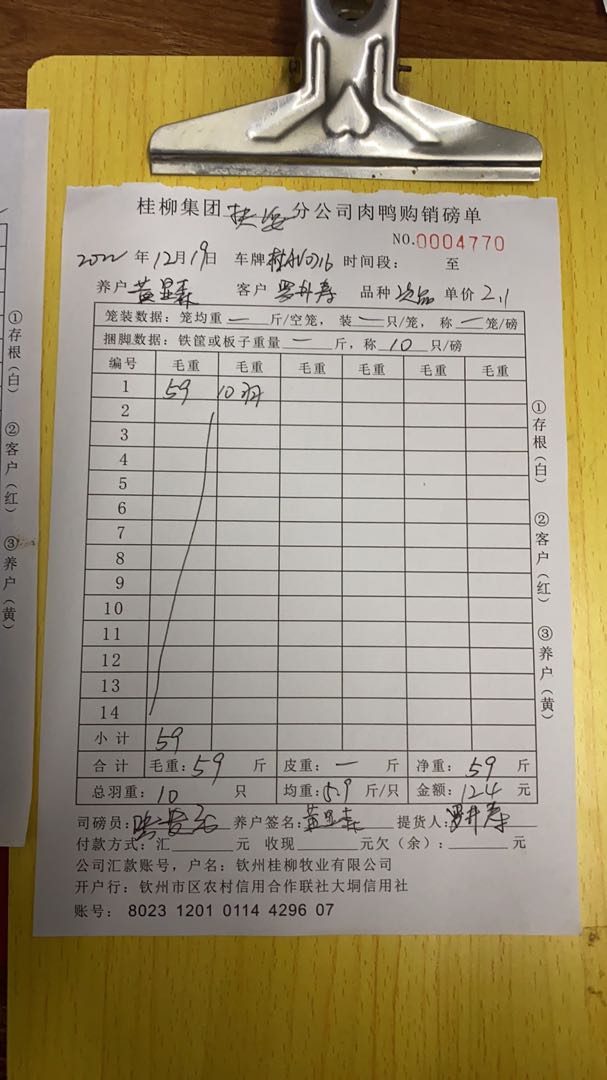 桂柳集团 分公司肉鸭购销磅单
NO.0004770
2022年12月19日 车牌 时间段： 至
养户 黄显森 客户 罗井寿 品种 次品 单价 2.1
笼装数据：笼均重 一 斤/空笼，装 一 只/笼，称 一 笼/磅
捆脚数据：铁筐或板子重量 一 斤，称 10 只/磅
编号 毛重 毛重 毛重 毛重 毛重 毛重
1 59 10羽
2
3
4
5
6
7
8
9
10
11
12
13
14
小计 59
合计 毛重：59 斤 皮重：一 斤 净重：59 斤
总羽重：10 只 均重：5.9 斤/只 金额：124 元
司磅员： 养户签名：黄显森 提货人：罗井寿
付款方式：汇 元 收现 元欠（余）： 元
公司汇款账号，户名：钦州桂柳牧业有限公司
开户行：钦州市区农村信用合作联社大垌信用社
账号： 8023 1201 0114 4296 07
①存根（白）
②客户（红）
③养户（黄）
①存根（白）
②客户（红）
③养户（黄）